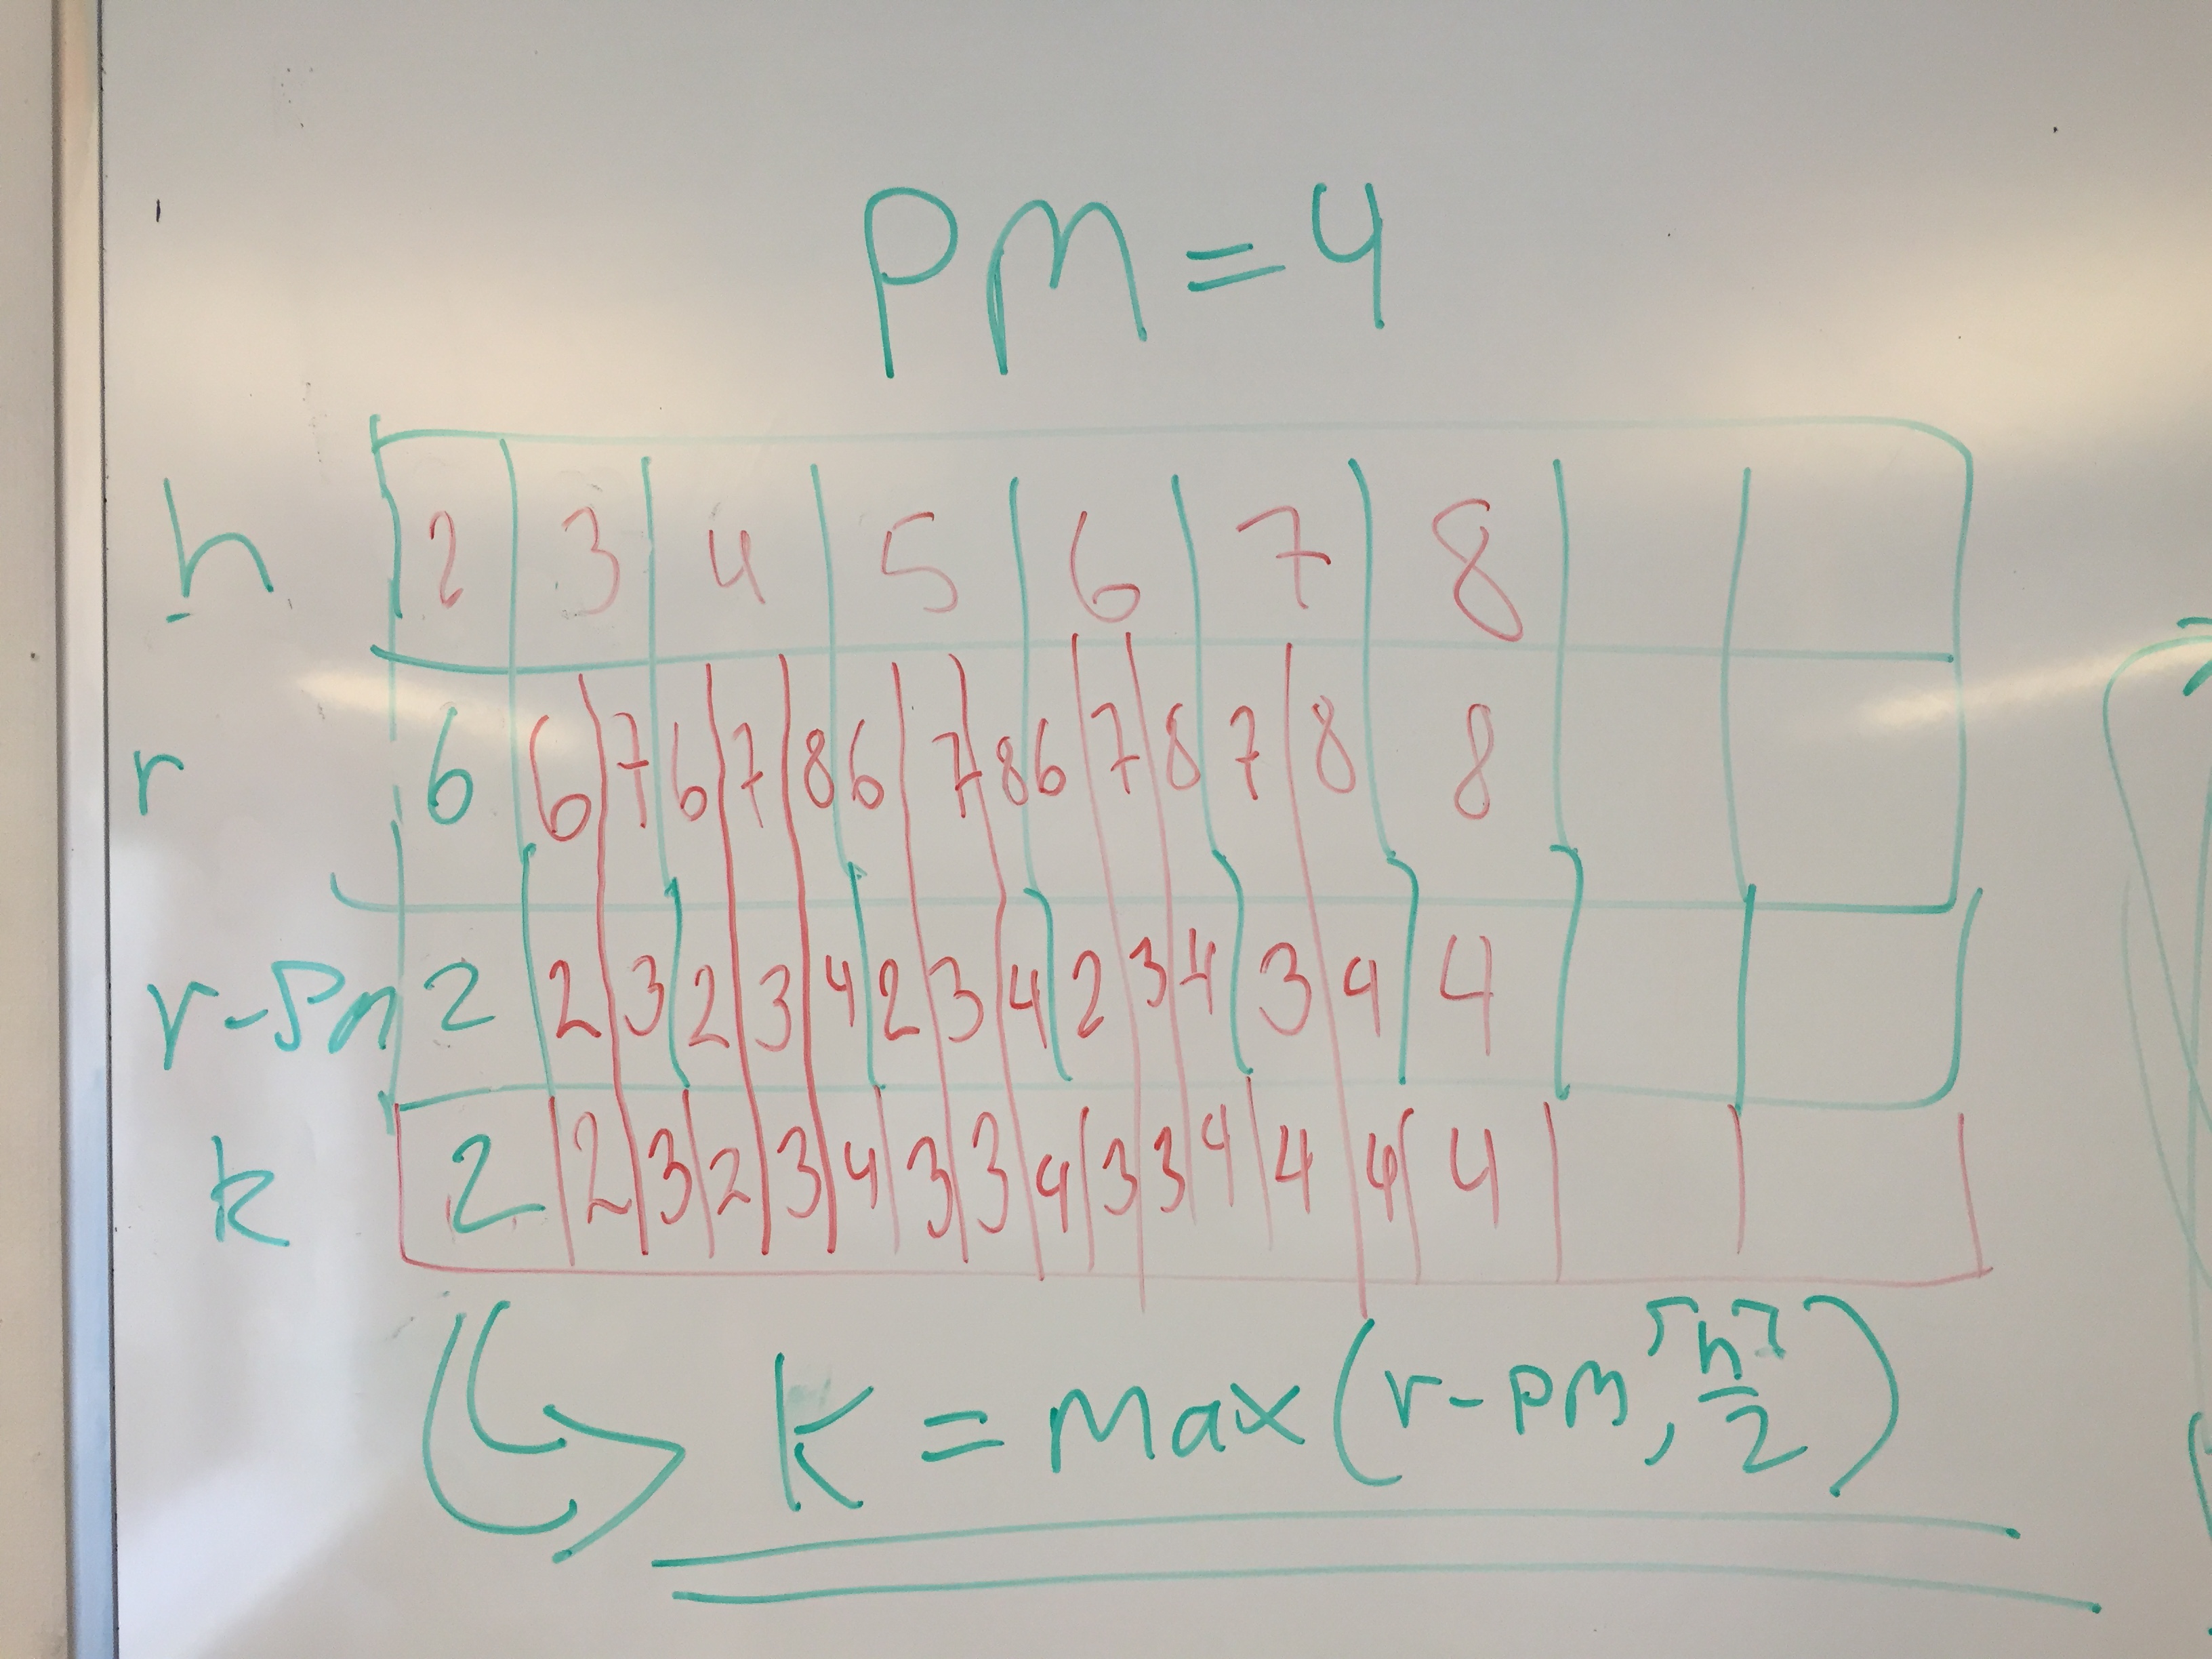 PM = 4
h 2 3 4 5 6 7 8
r 6 6 7 6 7 8 6 7 8 6 7 8 7 8 8
r-Pm 2 2 3 2 3 4 2 3 4 2 3 4 3 4 4
k 2 2 3 2 3 4 3 3 4 3 3 4 4 4 4
k = max(r-pm, ⌈h⌉/2)